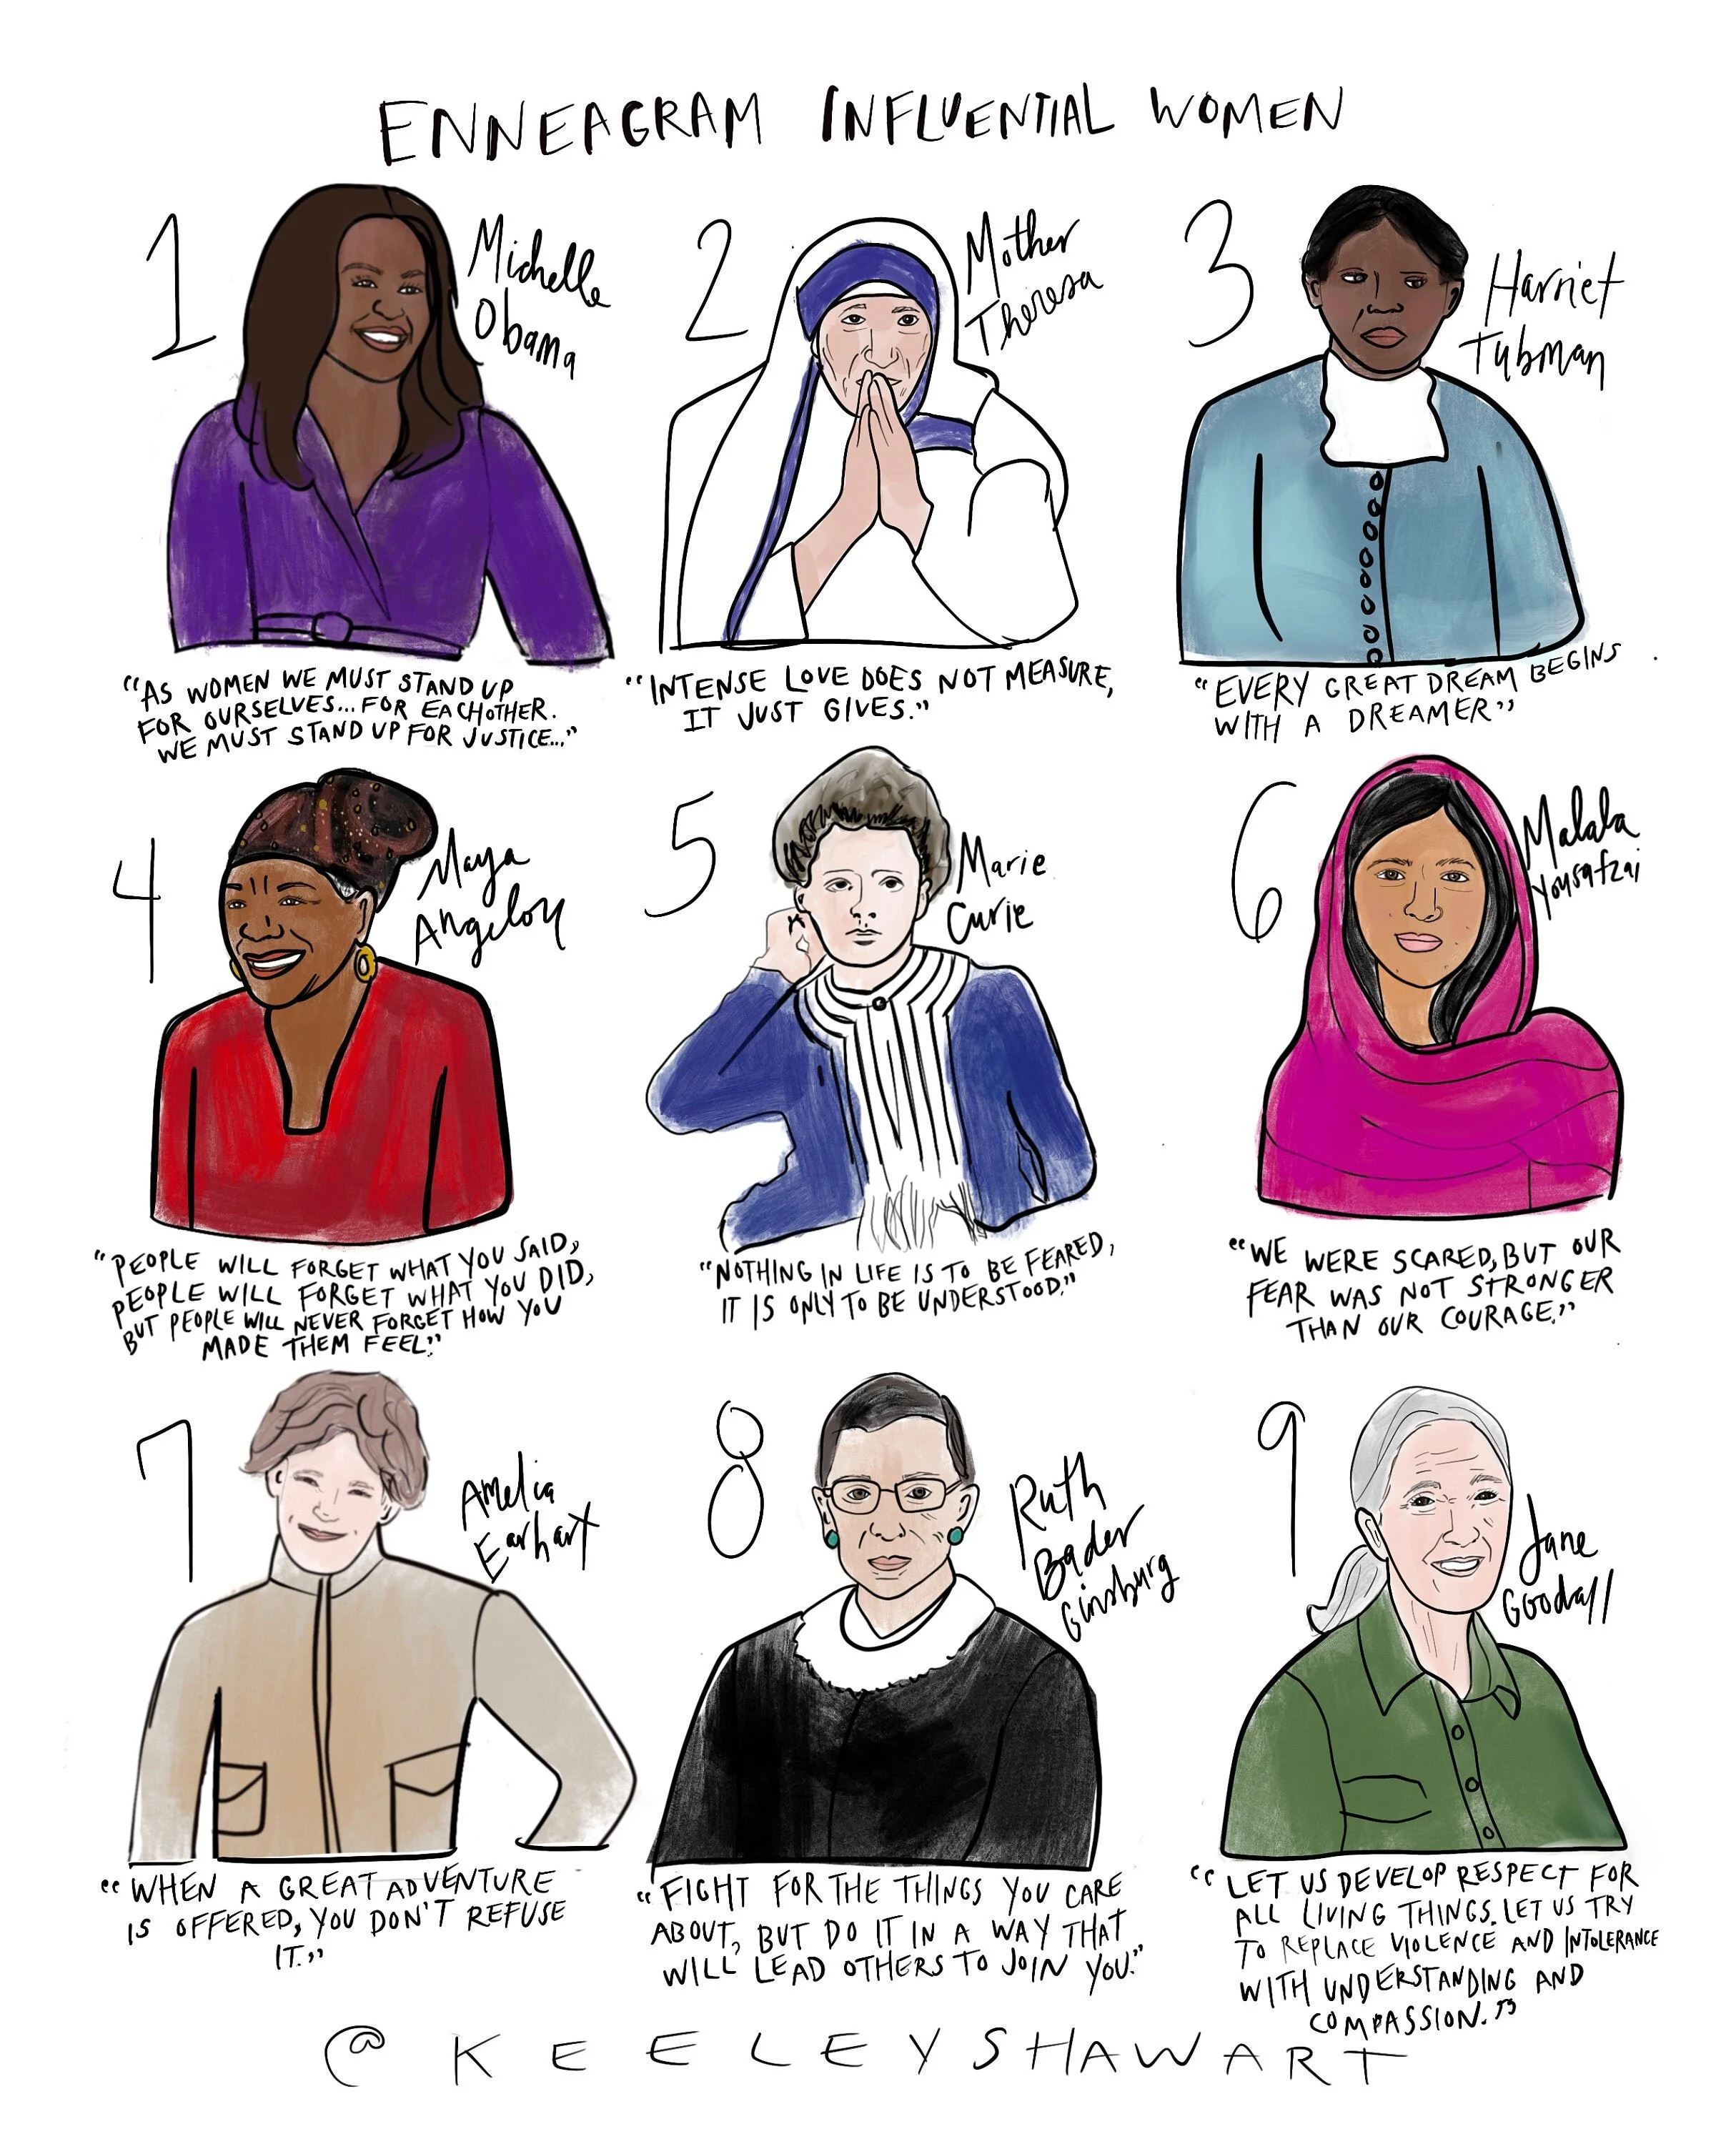 ENNEAGRAM INFLUENTIAL WOMEN
1
Michelle
Obama
"AS WOMEN WE MUST STAND UP
FOR OURSELVES...FOR EACHOTHER.
WE MUST STAND UP FOR JUSTICE..."
2
Mother
Theresa
"INTENSE LOVE DOES NOT MEASURE,
IT JUST GIVES."
3
Harriet
Tubman
"EVERY GREAT DREAM BEGINS
WITH A DREAMER"
4
Maya
Angelou
"PEOPLE WILL FORGET WHAT YOU SAID,
PEOPLE WILL FORGET WHAT YOU DID,
BUT PEOPLE WILL NEVER FORGET HOW YOU
MADE THEM FEEL."
5
Marie
Curie
"NOTHING IN LIFE IS TO BE FEARED,
IT IS ONLY TO BE UNDERSTOOD."
6
Malala
Yousafzai
"WE WERE SCARED, BUT OUR
FEAR WAS NOT STRONGER
THAN OUR COURAGE."
7
Amelia
Earhart
"WHEN A GREAT ADVENTURE
IS OFFERED, YOU DON'T REFUSE
IT."
8
Ruth
Bader
Ginsburg
"FIGHT FOR THE THINGS YOU CARE
ABOUT, BUT DO IT IN A WAY THAT
WILL LEAD OTHERS TO JOIN YOU."
9
Jane
Goodall
"LET US DEVELOP RESPECT FOR
ALL LIVING THINGS. LET US TRY
TO REPLACE VIOLENCE AND INTOLERANCE
WITH UNDERSTANDING AND
COMPASSION."
@KEELEYSHAWART